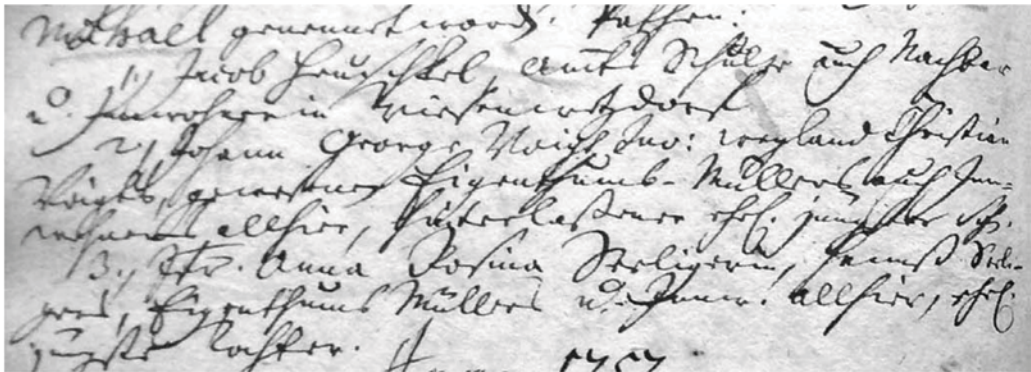 Michael genennet word. Pathen:
1., Jacob Heuschkel, Amts Schulze auch Nachbar
u. Innwohner in
2., Johann George Voigt Juv: weyland Christian
Voigts, gewesenen Eigenthumbs-Müllers auch Inn-
wohners allhier, hinterlaßener ehel. jüngster Sohn.
3., Jfr. Anna Rosina Seeligerin, Hannß Seeli-
gers, Eigenthums Müllers u. Innw. allhier, ehel.
jüngste Tochter.
1757